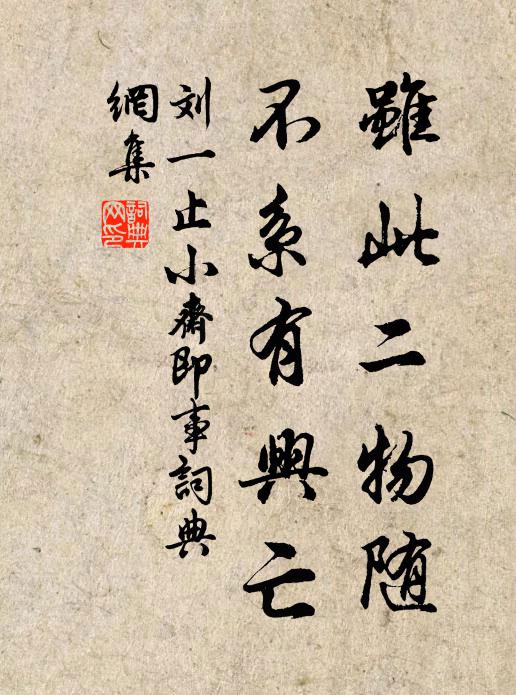 雖此二物随
不系有興亡
刘一止小齋即事詞典
網集
詞典
网印